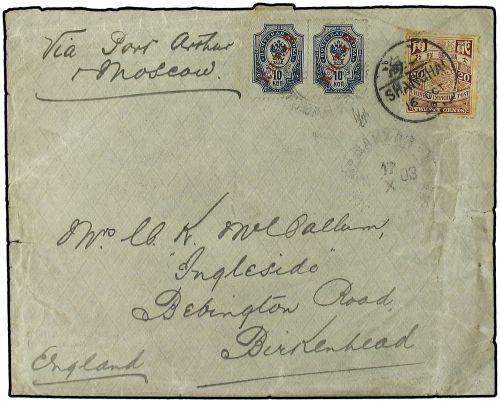 Via Port Arthur
& Moscow.
10
КОП
10
КОП
20
SHANGHAI
16
17
X 03
Mrs W. K. McCallum,
"Ingleside"
Bebington Road,
Birkenhead
England